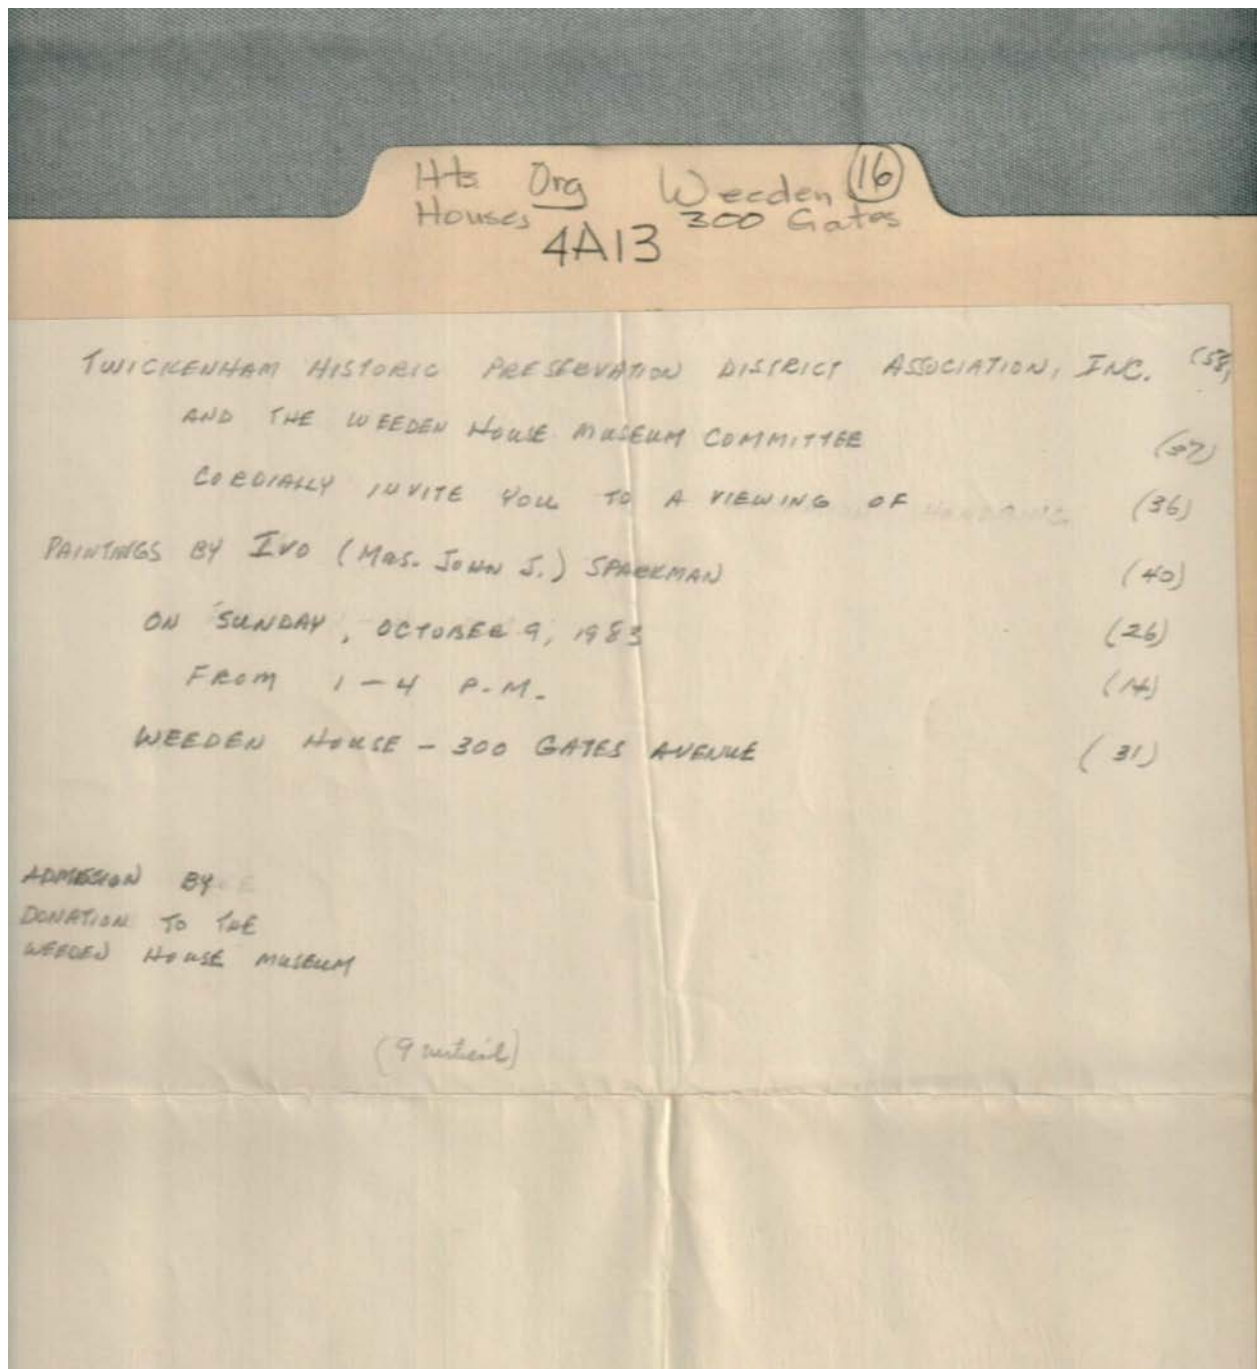 Hts Org Weeden 16
Houses 300 Gates
4A13
TWICKENHAM HISTORIC PRESERVATION DISTRICT ASSOCIATION, INC. (58)
AND THE WEEDEN HOUSE MUSEUM COMMITTEE (37)
CORDIALLY INVITE YOU TO A VIEWING OF (36)
PAINTINGS BY IVO (MRS. JOHN J.) SPARKMAN (40)
ON SUNDAY, OCTOBER 9, 1983 (26)
FROM 1-4 P.M. (14)
WEEDEN HOUSE - 300 GATES AVENUE (31)
ADMISSION BY
DONATION TO THE
WEEDEN HOUSE MUSEUM
(9